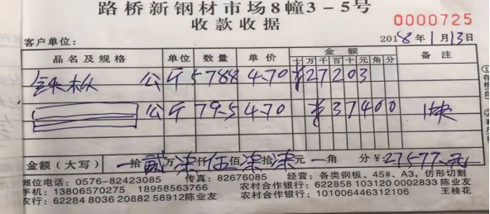 路桥新钢材市场8幢3-5号
收款收据
0000725
客户单位: 2018年1月13日
品名及规格 单位 数量 单价 金额 备注
十万千百十元角分
铁板 公斤 5788 4.70 ¥27203
公斤 79.5 4.70 ¥37400 1块
金额(大写) 一拾贰万柒仟伍佰柒拾柒元一角 分 ¥27577元
摊位电话: 0576-82423085 传真: 82676085 经营: 各类钢板、45#、A3、仿形切割
手机: 13806570275 18958563766 农村合作银行: 622858 103120 0002833 陈业友
农行: 62284 8036 20882 58912陈业友 农村合作银行: 101006446312106 王桂花